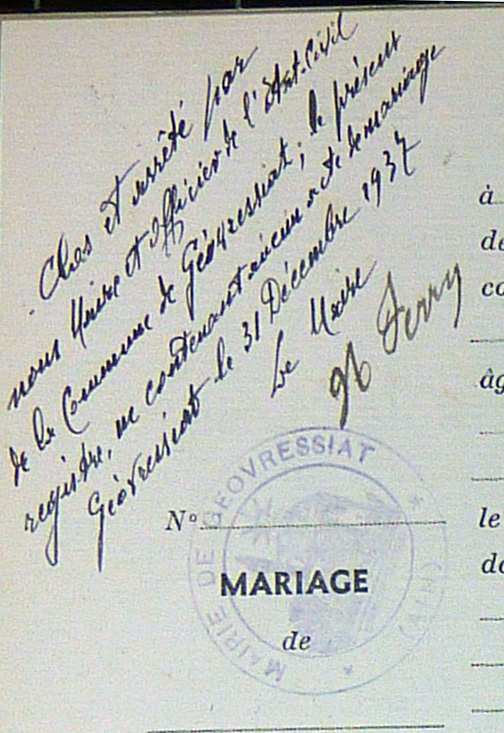 Clos et arrêté par
nous Maire et Officier de l'Etat-Civil
de la Commune de Géovressiat ; le présent
registre, ne contenant aucun acte de mariage
Géovressiat le 31 Décembre 1937
Le Maire
Ferry
MAIRIE DE GEOVRESSIAT
(AIN)
N°
MARIAGE
de
à
de
co
âg
le
de